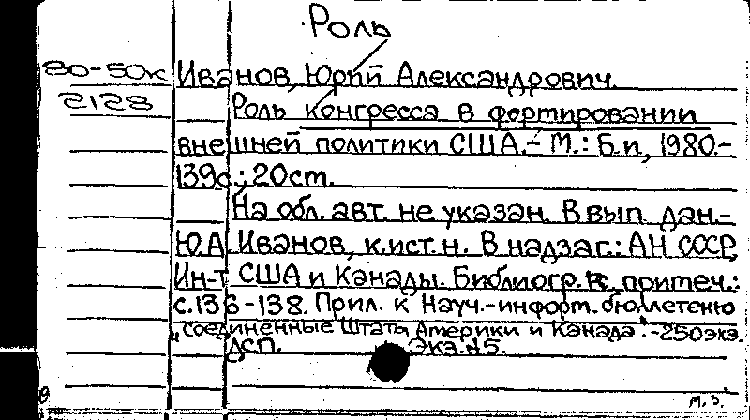 Роль
80-50к Иванов, Юрий Александрович.
2128 Роль конгресса в формировании
внешней политики США. - М.: Б.и, 1980.-
139с.; 20см.
На обл. авт. не указан. В вып. дан.-
Ю.А. Иванов, к.ист.н. В надзаг.: АН СССР,
Ин-т США и Канады. Библиогр. в примеч.:
с.136-138. Прил. к Науч.-информ. бюллетеню
"Соединённые Штаты Америки и Канада". -250экз.
ДСП. Экз.№5.
м.з.